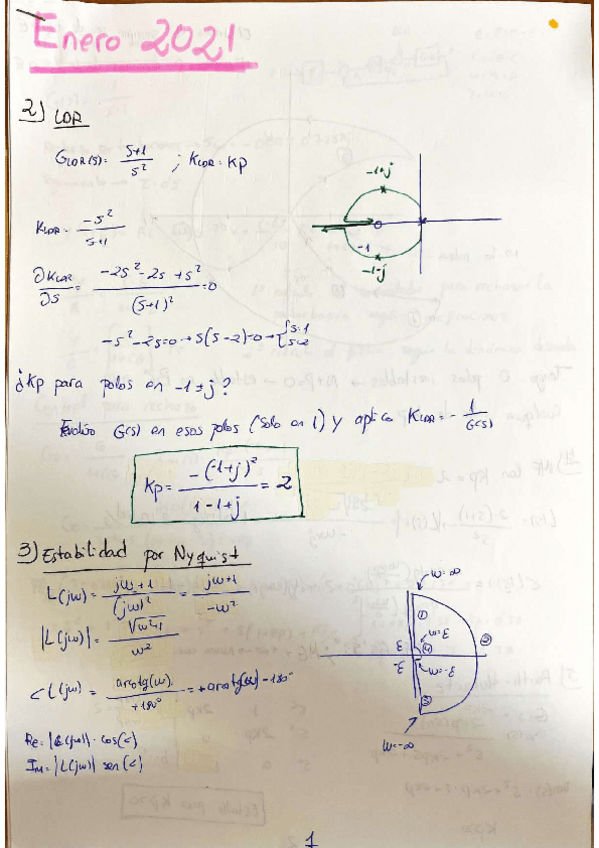 Enero 2021
2) LDR
G_LDR(s) = (s+1)/s² ; K_LDR = Kp
-1+j
K_LDR = -s²/(s+1)
-1
-1-j
∂K_LDR/∂s = (-2s²-2s+s²)/(s+1)² = 0
-s²-2s=0 → s(s-2)=0 → { s=1 s=2
¿Kp para polos en -1±j?
Evalúo G(s) en esos polos (solo en 1) y aplico K_LDR = - 1/G(s)
Kp = -(-1+j)²/(1-1+j) = 2
3) Estabilidad por Nyquist
L(jω) = (jω+1)/(jω)² = (jω+1)/-ω²
|L(jω)| = √(ω²+1)/ω²
<L(jω) = arctg(ω)/+180° = +arctg(ω)-180°
Re = |L(jω)| · cos(<)
Im = |L(jω)| sen(<)
ω=∞
①
ω=ε
ε
④
②
-ε
ω=-ε
③
ω=-∞
1